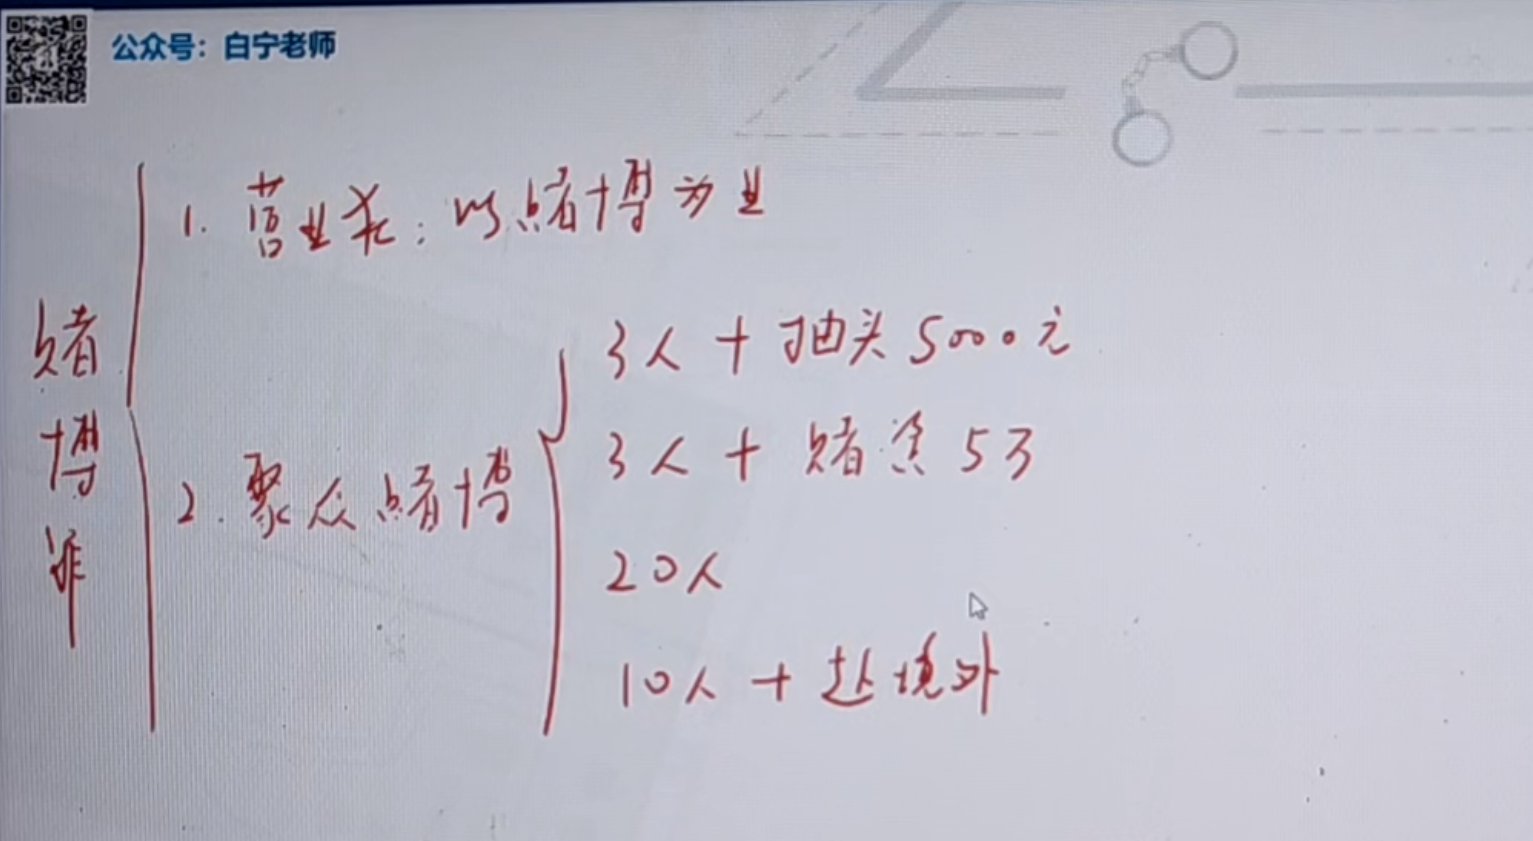 公众号：白宁老师
赌博罪
1. 营业类：以赌博为业
2. 聚众赌博
3人＋抽头5000元
3人＋赌资5万
20人
10人＋赴境外